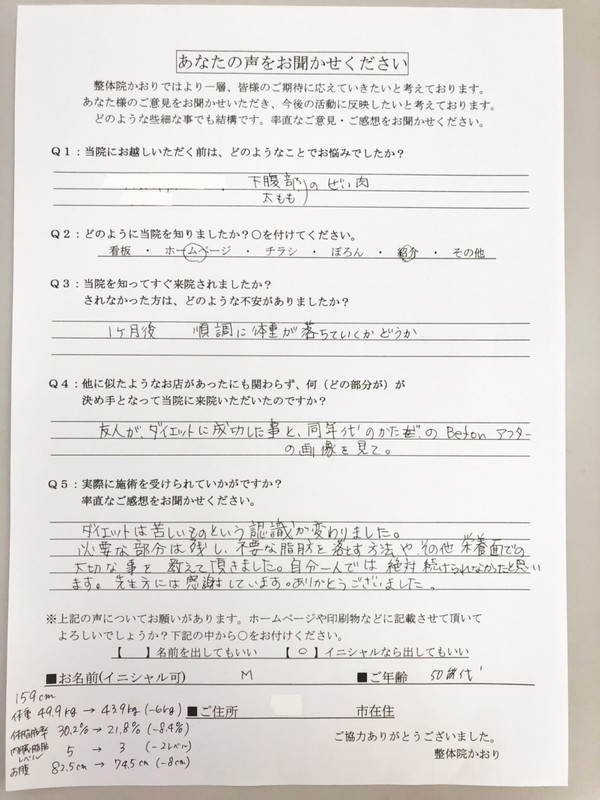 あなたの声をお聞かせください
整体院かおりではより一層、皆様のご期待に応えていきたいと考えております。
あなた様のご意見をお聞かせいただき、今後の活動に反映したいと考えております。
どのような些細な事でも結構です。率直なご意見・ご感想をお聞かせください。
Q1：当院にお越しいただく前は、どのようなことでお悩みでしたか？
下腹部 のぜい肉
太もも
Q2：どのように当院を知りましたか？○を付けてください。
看板 ・ ホームページ ・ チラシ ・ ぽろん ・ 紹介 ・ その他
Q3：当院を知ってすぐ来院されましたか？
されなかった方は、どのような不安がありましたか？
1ヶ月後 順調に体重が落ちていくかどうか
Q4：他に似たようなお店があったにも関わらず、何（どの部分が）が
決め手となって当院に来院いただいたのですか？
友人が、ダイエットに成功した事と、同年代のかた の Befor アフター
の画像を見て。
Q5：実際に施術を受けられていかがですか？
率直なご感想をお聞かせください。
ダイエットは苦しいものという認識が変わりました。
必要な部分は残し、不要な脂肪を落とす方法や、その他栄養面での
大切な事を教えて頂きました。自分一人では絶対続けられなかったと思い
ます。先生方には感謝しています。ありがとうございました。
※上記の声についてお願いがあります。ホームページや印刷物などに記載させて頂いて
よろしいでしょうか？下記の中から○をお付けください。
【　】名前を出してもいい 【○】イニシャルなら出してもいい
■お名前(イニシャル可) M ■ご年齢 50歳代
159cm
体重 49.9kg → 43.9kg (-6kg) ■ご住所 市在住
体脂肪率 30.2% → 21.8% (-8.4%)
内臓脂肪レベル 5 → 3 (-2レベル)
お腹 82.5cm → 74.5cm (-8cm)
ご協力ありがとうございました。
整体院かおり